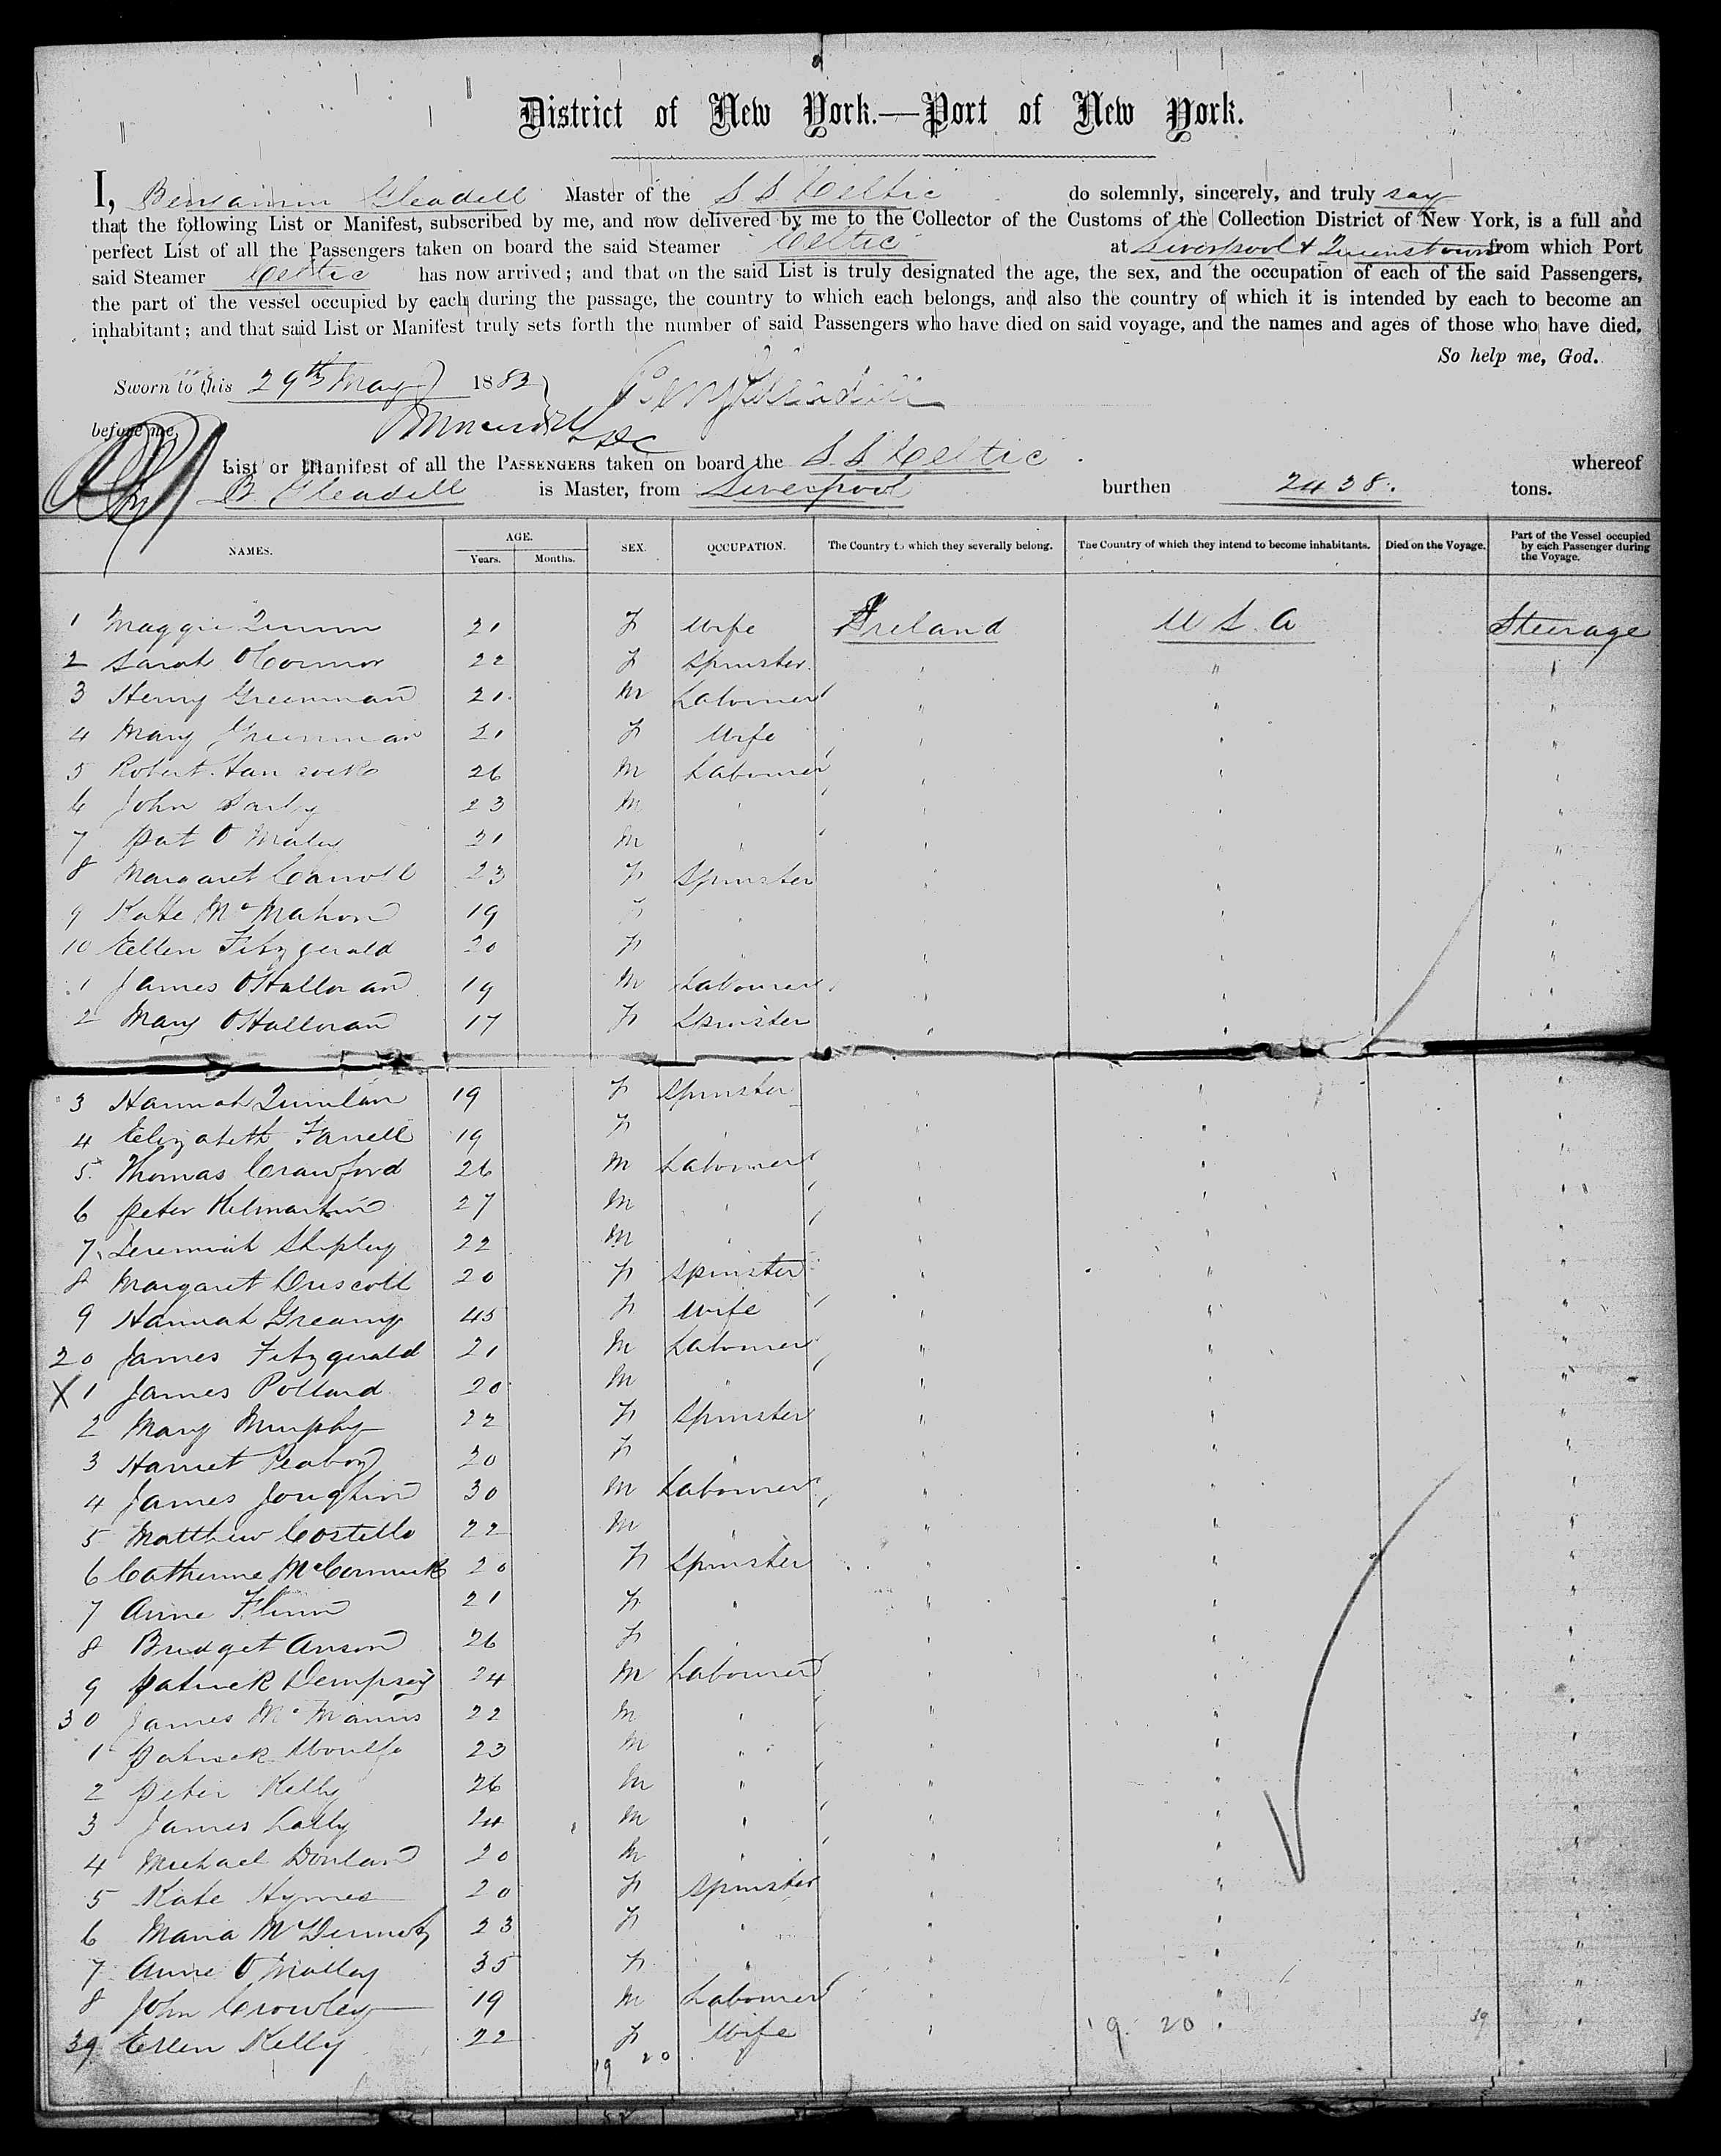 District of New York.—Port of New York.
I, Benjamin Gleadell Master of the S S Celtic do solemnly, sincerely, and truly say
that the following List or Manifest, subscribed by me, and now delivered by me to the Collector of the Customs of the Collection District of New York, is a full and
perfect List of all the Passengers taken on board the said Steamer Celtic at Liverpool & Queenstown from which Port
said Steamer Celtic has now arrived; and that on the said List is truly designated the age, the sex, and the occupation of each of the said Passengers,
the part of the vessel occupied by each during the passage, the country to which each belongs, and also the country of which it is intended by each to become an
inhabitant; and that said List or Manifest truly sets forth the number of said Passengers who have died on said voyage, and the names and ages of those who have died.
So help me, God.
Sworn to this 29th May 1883 Gleadell
before me,
List or Manifest of all the PASSENGERS taken on board the S. S Celtic whereof
B. Gleadell is Master, from Liverpool burthen 2438. tons.
NAMES. AGE. Years. Months. SEX. OCCUPATION. The Country to which they severally belong. The Country of which they intend to become inhabitants. Died on the Voyage. Part of the Vessel occupied by each Passenger during the Voyage.
1 Maggie Quinn 21 F Wife Ireland U S. A Steerage
2 Sarah O'Connor 22 F Spinster "
3 Henry Greenman 21 M Labourer "
4 Mary Greenman 21 F Wife "
5 Robert Hancocks 26 M Labourer "
6 John 23 M " "
7 Pat O Maley 21 M " "
8 Margaret Carroll 23 F Spinster "
9 Kate McMahon 19 F " "
10 Ellen Fitzgerald 20 F " "
1 James O'Halloran 19 M Labourer "
2 Mary O'Halloran 17 F Spinster "
3 Hannah Quinlan 19 F Spinster "
4 Elizabeth Farrell 19 F " "
5 Thomas Crawford 26 M Labourer "
6 Peter Kilmartin 27 M " "
7 Jeremiah Shipley 22 M " "
8 Margaret Driscoll 20 F Spinster "
9 Hannah Greany 45 F Wife "
20 James Fitzgerald 21 M Labourer "
X 1 James Pollard 20 M " "
2 Mary Murphy 22 F Spinster "
3 Harriet Peaboy 20 F " "
4 James Joughin 30 M Labourer "
5 Matthew Costello 22 M " "
6 Catherine McCormick 20 F Spinster "
7 Anne Flinn 21 F " "
8 Bridget Anson 26 F " "
9 Patrick Dempsey 24 M Labourer "
30 James McManus 22 M " "
1 Patrick Woulfe 23 M " "
2 Peter Kelly 26 M " "
3 James Lally 24 M " "
4 Michael Donlan 20 M " "
5 Kate Hymes 20 F Spinster "
6 Maria McDermott 23 F " "
7 Anne O'Malley 35 F " "
8 John Crowley 19 M Labourer "
39 Ellen Kelly 22 F Wife 19 20 39
19 20